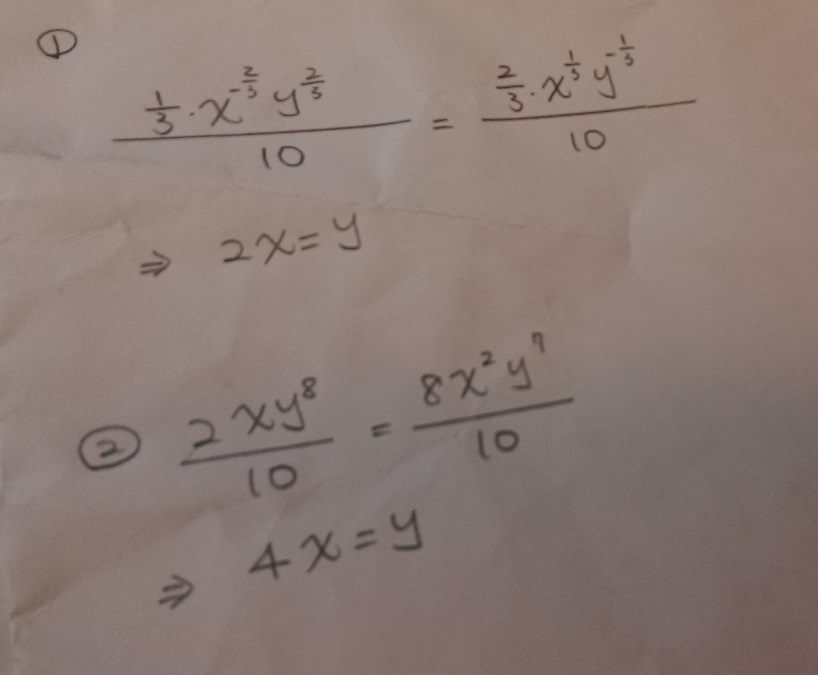 ①
1/3 · x^(-2/3) y^(2/3) / 10 = 2/3 · x^(1/3) y^(-1/3) / 10
⇒ 2x = y
② 2xy^8 / 10 = 8x^2 y^7 / 10
⇒ 4x = y